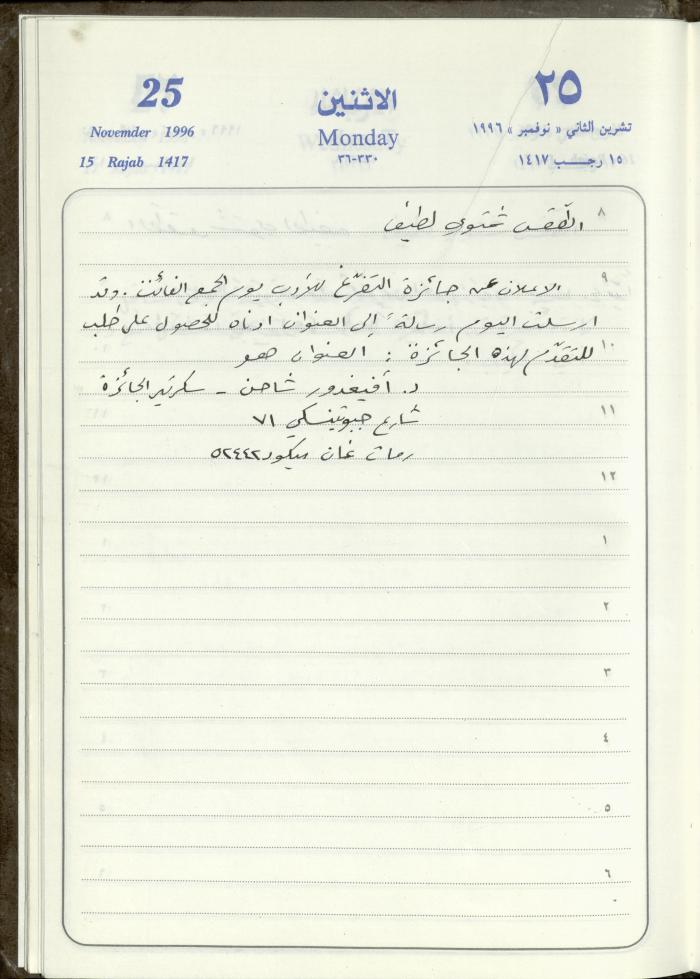 25
Novemder 1996
15 Rajab 1417
الاثنين
Monday
٣٣٠-٣٦
٢٥
تشرين الثاني « نوفمبر » ١٩٩٦
١٥ رجب ١٤١٧
٨ الطقس شتوي لطيف
٩ الاعلان عن جائزة التفرّغ للأدب يوم الجمع الفائت. وقد
ارسلت اليوم رسالة إلى العنوان ادناه للحصول على طلب
١٠ للتقدّم لهذه الجائزة : العنوان هو
د. أفيغدور شاحن - سكرتير الجائزة
١١ شارع جبوتينسكي ٧١
رمات غان ميكود ٥٢٤٤٢
١٢
١
٢
٣
٤
٥
٦